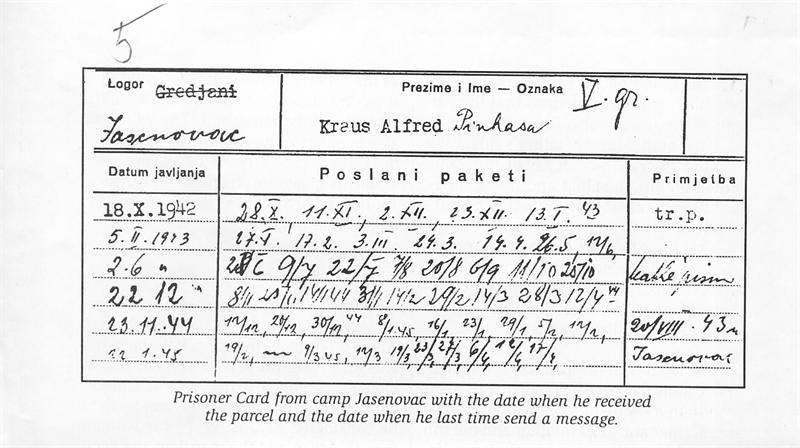 5
Logor Gredjani
Jasenovac
Prezime i Ime — Oznaka V. gr.
Kraus Alfred Pinkasa
Datum javljanja Poslani paketi Primjetba
18.X.1942 28.X. 11.XI., 2.XII. 23.XII. 13.I. 43 tr.p.
5. II. 1943 27.I. 17.2. 3.III. 24.3. 14.4. 26.5,
2.6 " 9/7 22/7 7/8 20/8 6/9 11/10 25/10
22 12 " 14/2 29/2 14/3 28/3 12/4 44
23.11.44 30/12 44 8/1.45, 16/1, 23/1, 29/1, 5/2, 20/VIII. 43
1.45 19/2, 9/3 45, 19/3, 23/3, 27/3, 6/4, 17/4, Jasenovac
Prisoner Card from camp Jasenovac with the date when he received
the parcel and the date when he last time send a message.